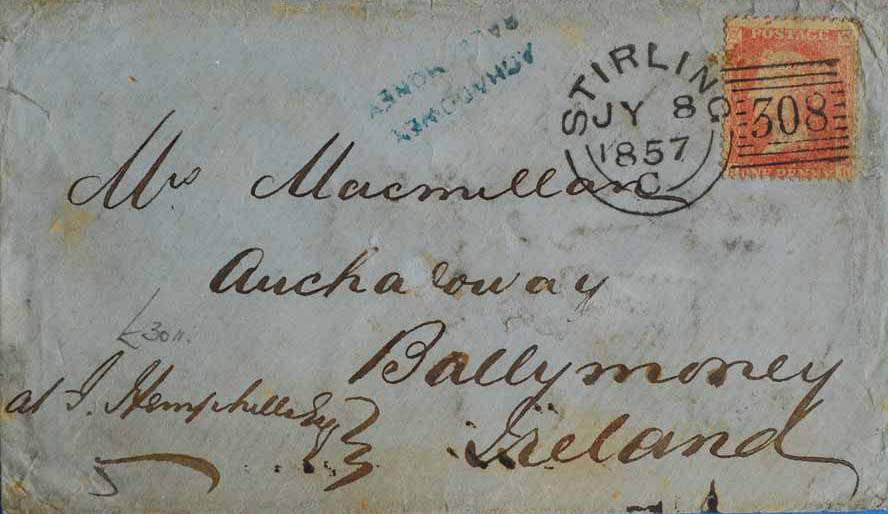 AGHADOWEY
BALLYMONEY
STIRLING
JY 8
1857
C
POSTAGE
308
ONE PENNY
Mrs Macmillan
Aucharoway
Ballymoney
Ireland
at J. Hemphills Esq